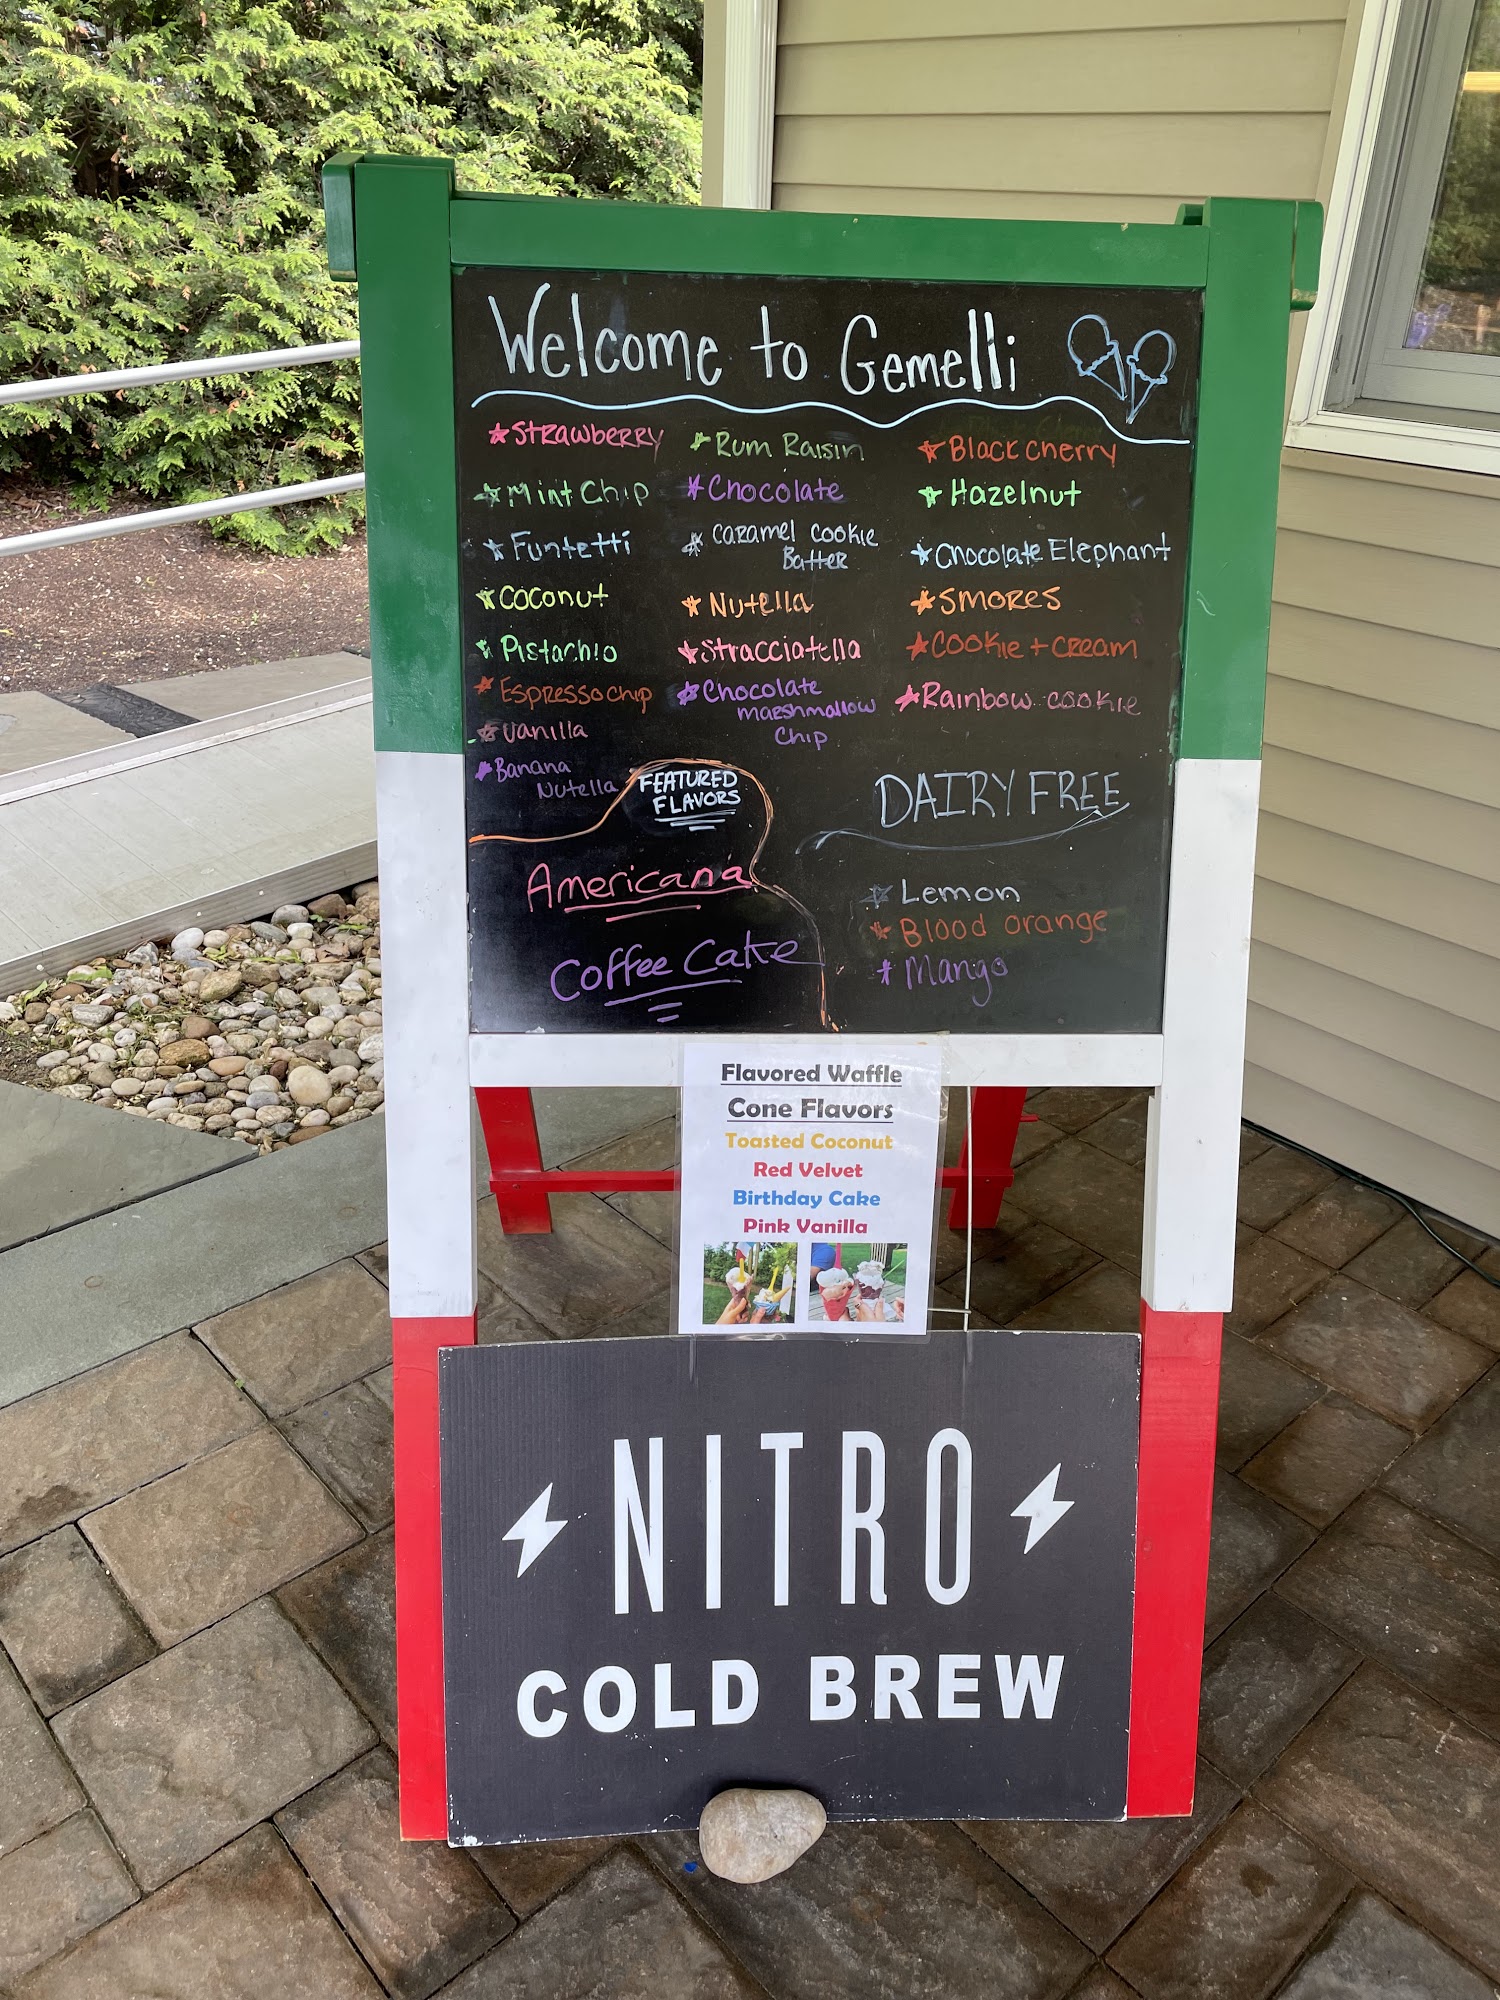 Welcome to Gemelli
Strawberry
Mint Chip
Funfetti
Coconut
Pistachio
Espresso chip
Vanilla
Banana
Nutella
Rum Raisin
Chocolate
Caramel Cookie
Batter
Nutella
Stracciatella
Chocolate
marshmallow
Chip
Black cherry
Hazelnut
Chocolate Elephant
Smores
Cookie + Cream
Rainbow cookie
FEATURED
FLAVORS
Americana
Coffee Cake
DAIRY FREE
Lemon
Blood orange
Mango
Flavored Waffle
Cone Flavors
Toasted Coconut
Red Velvet
Birthday Cake
Pink Vanilla
NITRO
COLD BREW